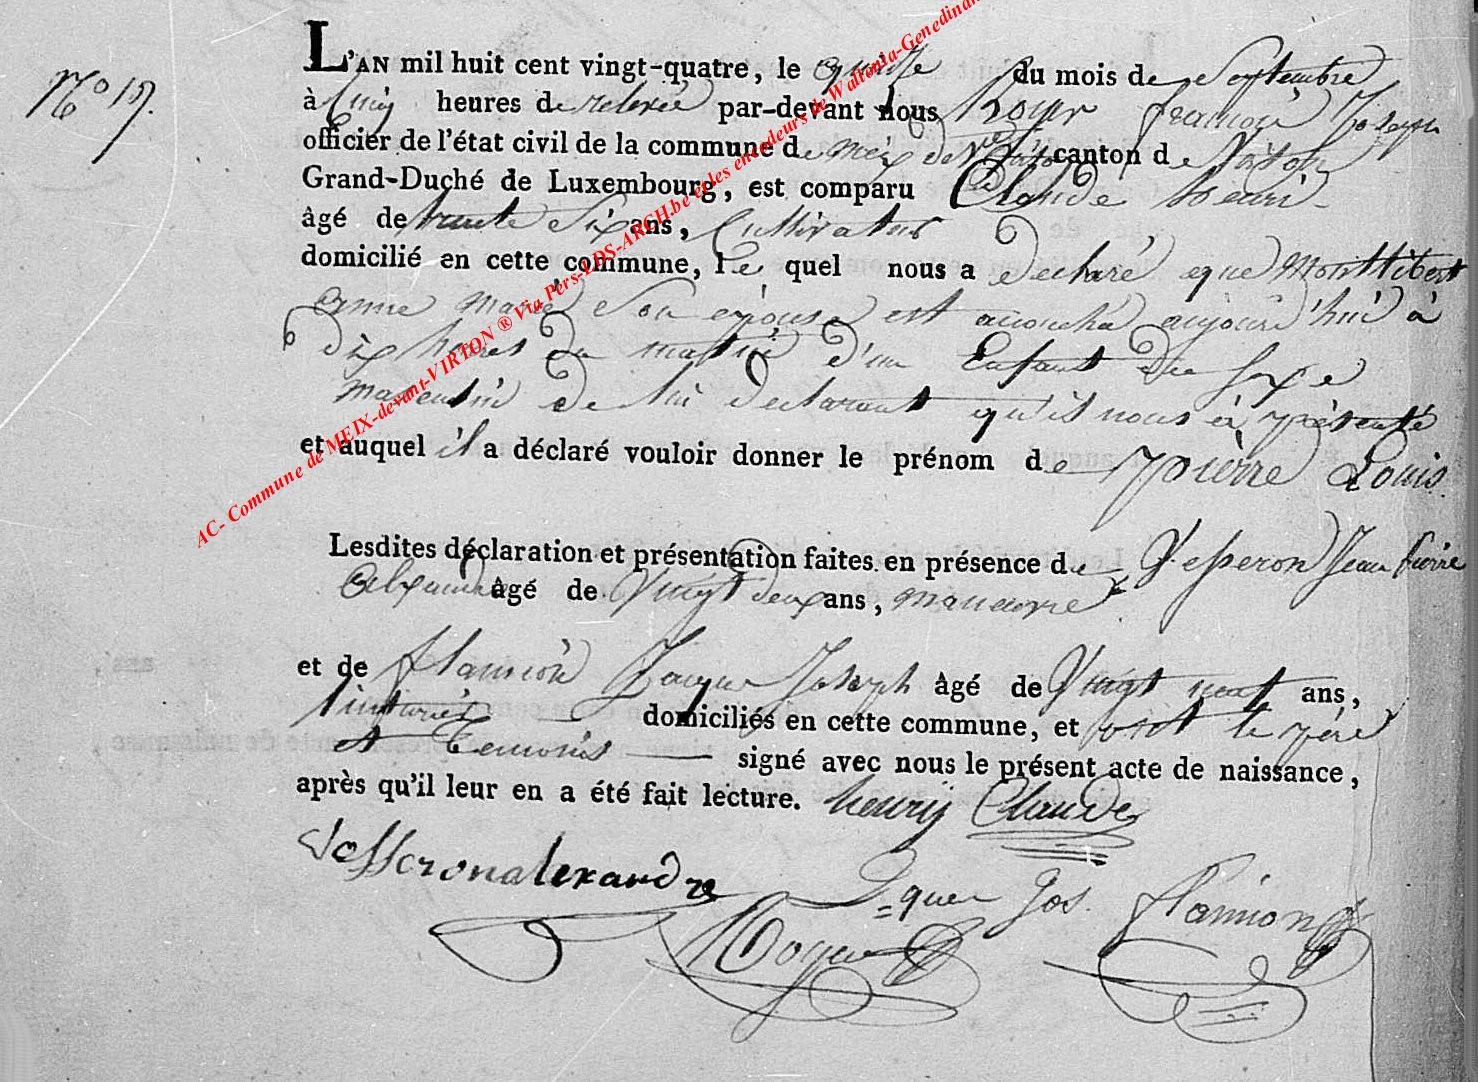 N.o 19.
L'AN mil huit cent vingt-quatre, le quinze du mois de Septembre
à Cinq heures de relevée par-devant nous Royer françois Joseph
officier de l'état civil de la commune de Meix devt Virton canton de Virton
Grand-Duché de Luxembourg, est comparu Claude henri
âgé de trente Six ans, Cultivateur
domicilié en cette commune, le quel nous a déclaré que Monthibert
anne marie Son épouse est acouchée aujourd'hui à
dix heures du matin d'un Enfant du Sexe
masculin de lui déclarant qu'il nous à présenté
et auquel il a déclaré vouloir donner le prénom de pierre Louis
Lesdites déclaration et présentation faites en présence de Jean pierre
âgé de Vingt deux ans, manœuvre
et de flamion Jacque Joseph âgé de Vingt neuf ans,
tinturier domiciliés en cette commune, et ont le père
et temoins signé avec nous le présent acte de naissance,
après qu'il leur en a été fait lecture. henry Claude
alexandre
Jos. flamion
Royer
AC- Commune de MEIX-devant-VIRTON ® Via Pers-LDS-ARCH.be et les encodeurs de Wallonia-Genedinant